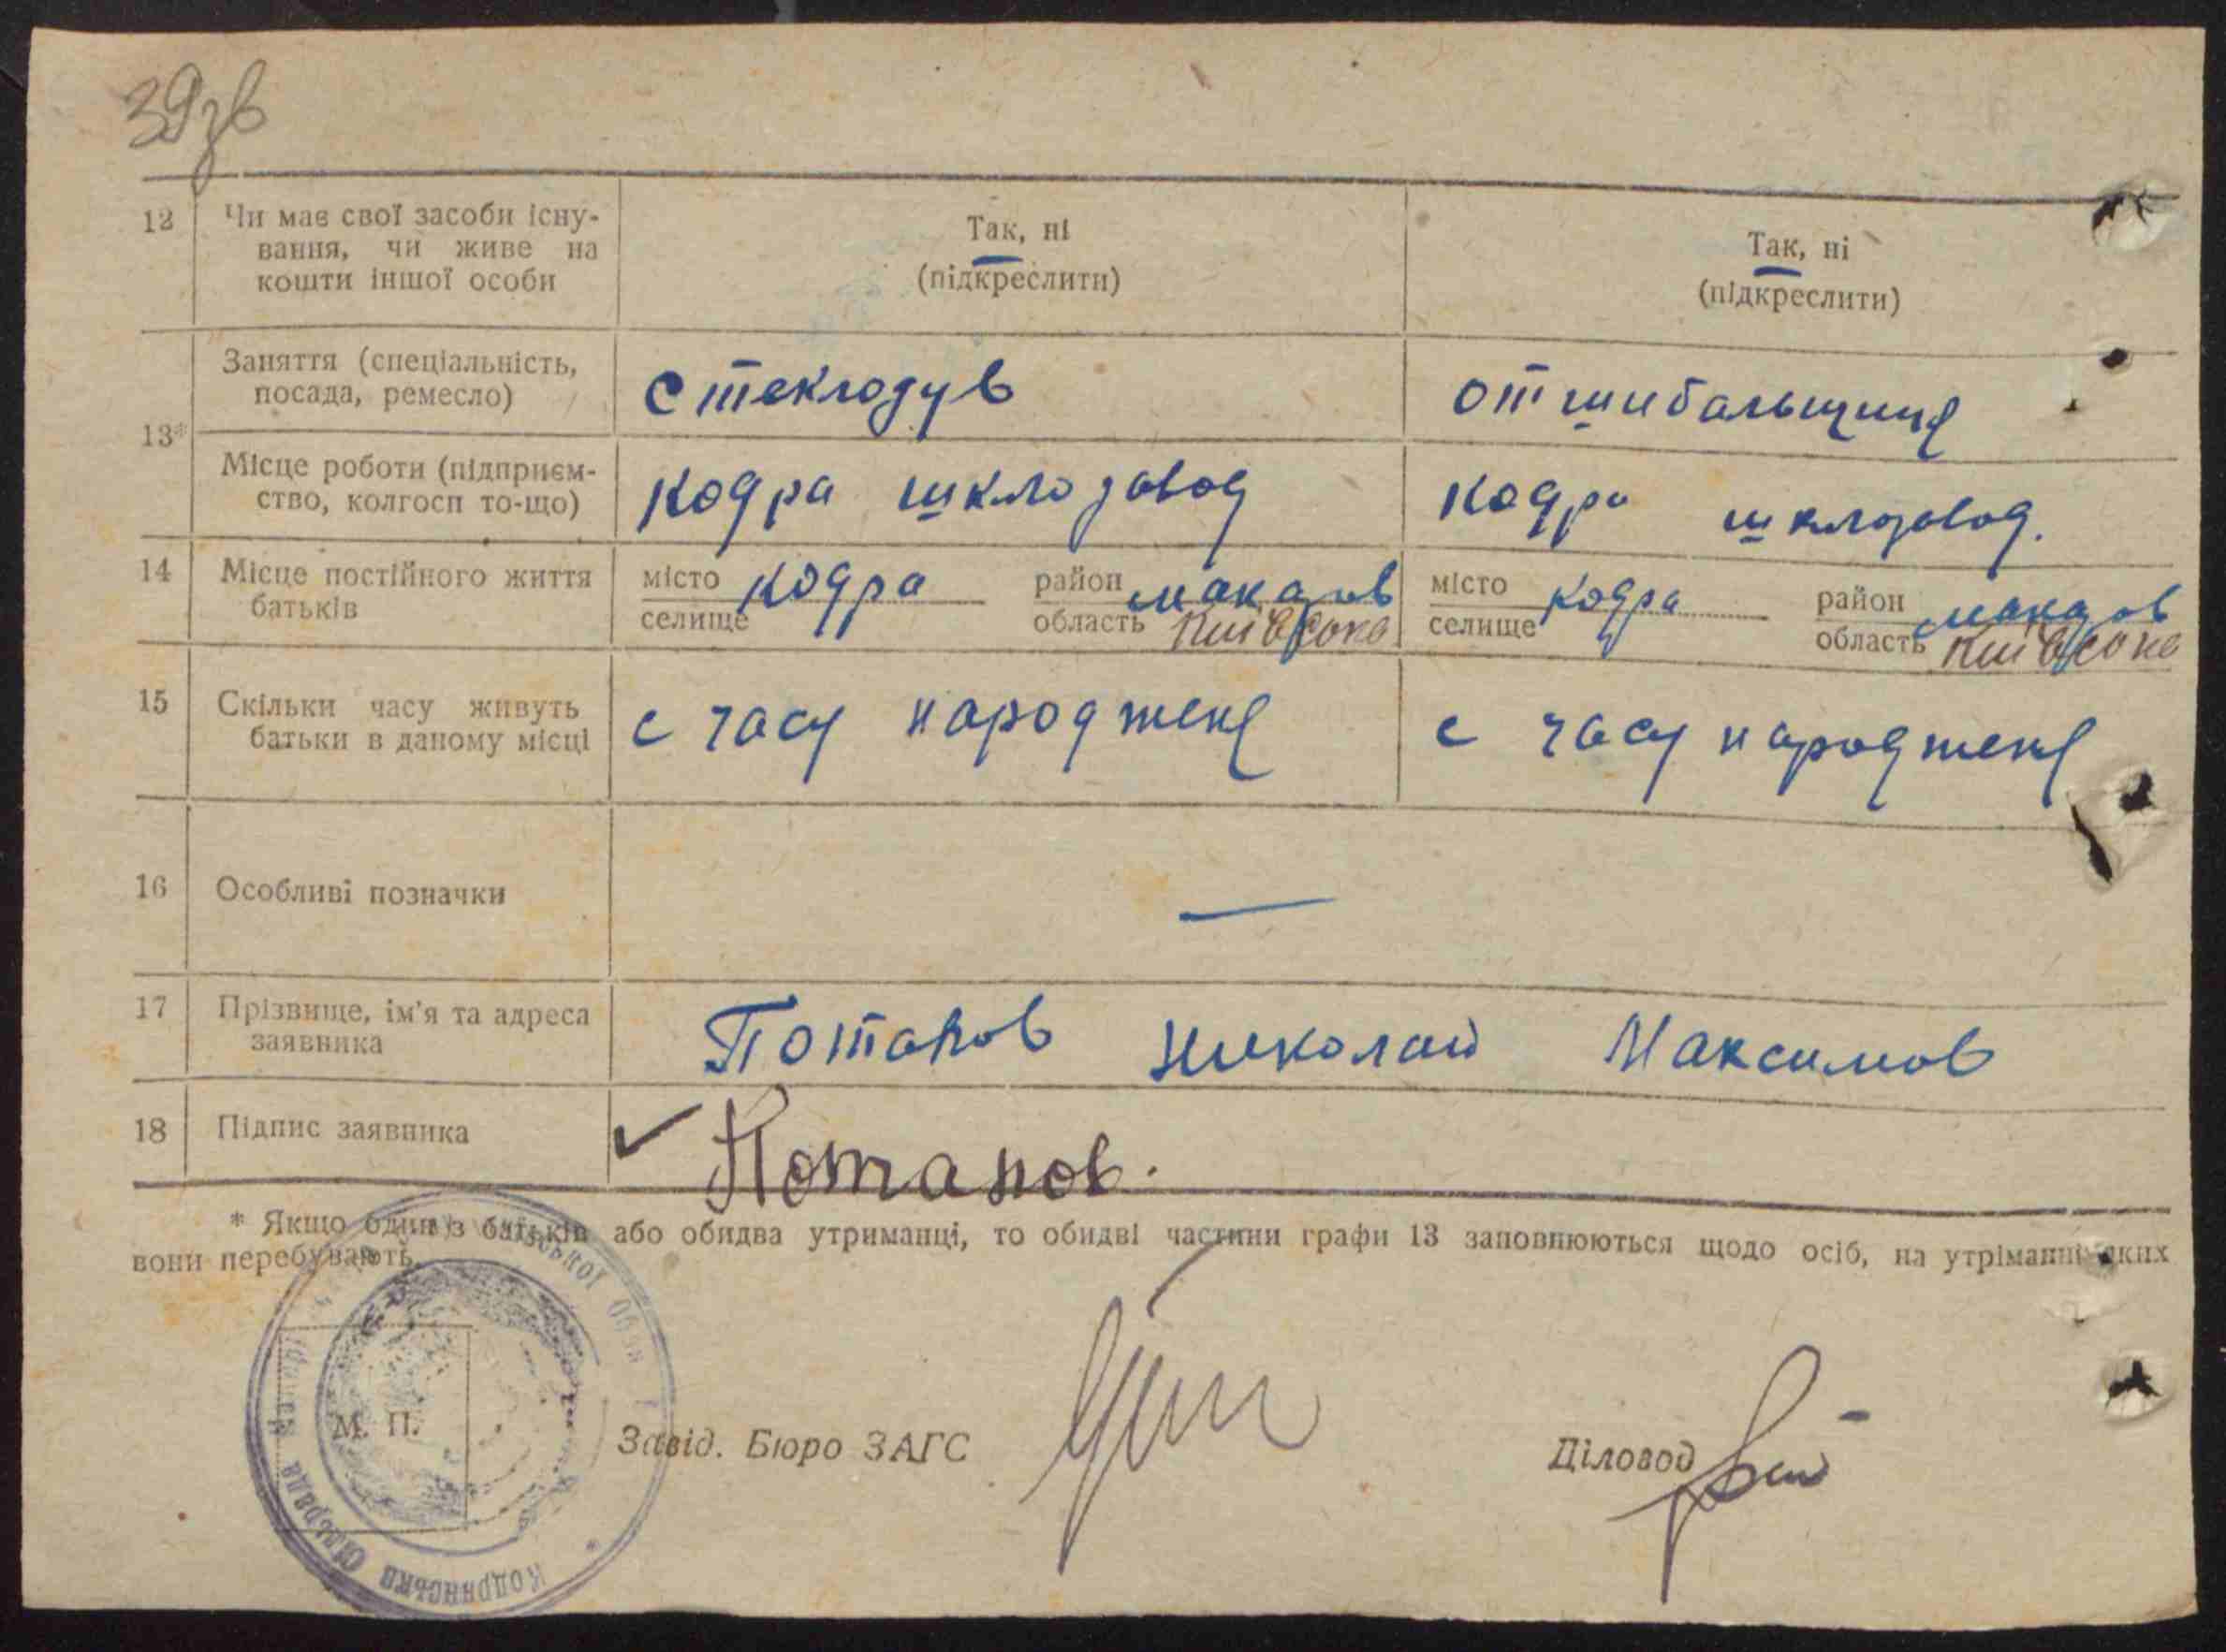 39зв
12 Чи має свої засоби існу-
вання, чи живе на
кошти іншої особи
Так, ні
(підкреслити)
Так, ні
(підкреслити)
13*
Заняття (спеціальність,
посада, ремесло)
стеклодув
отшибальщиця
Місце роботи (підприєм-
ство, колгосп то-що)
Кодра шклозавод
Кодра шклозавод.
14 Місце постійного життя
батьків
місто
селище
Кодра
район Макаров
область Київсока
місто
селище
Кодра
район Макаров
область Київсока
15 Скільки часу живуть
батьки в даному місці
с часу народженя
с часу народженя
16 Особливі позначки
—
17 Прізвище, ім'я та адреса
заявника
Потапов Николай Максимов
18 Підпис заявника
✓ Потапов.
* Якщо один з батьків або обидва утриманці, то обидві частини графи 13 заповнюються щодо осіб, на утріманні яких
вони перебувають.
М. П.
Завід. Бюро ЗАГС
Діловод
Кодрянська Сільрада